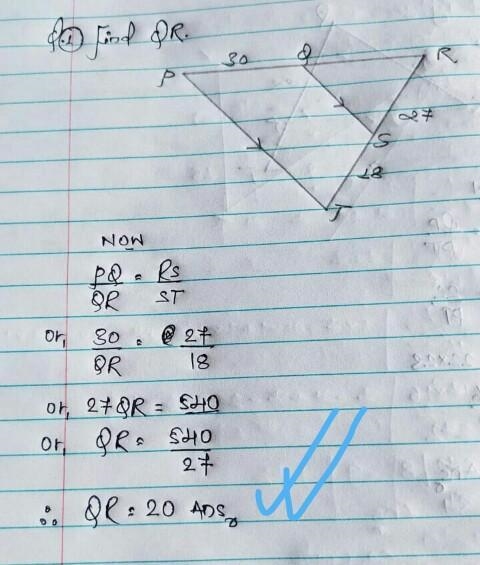 Q.1 Find QR.
P 30 Q R
27
S
18
T
NOW
PQ/QR = RS/ST
or, 30/QR = 27/18
or, 27QR = 540
or, QR = 540/27
∴ QR = 20 Ans